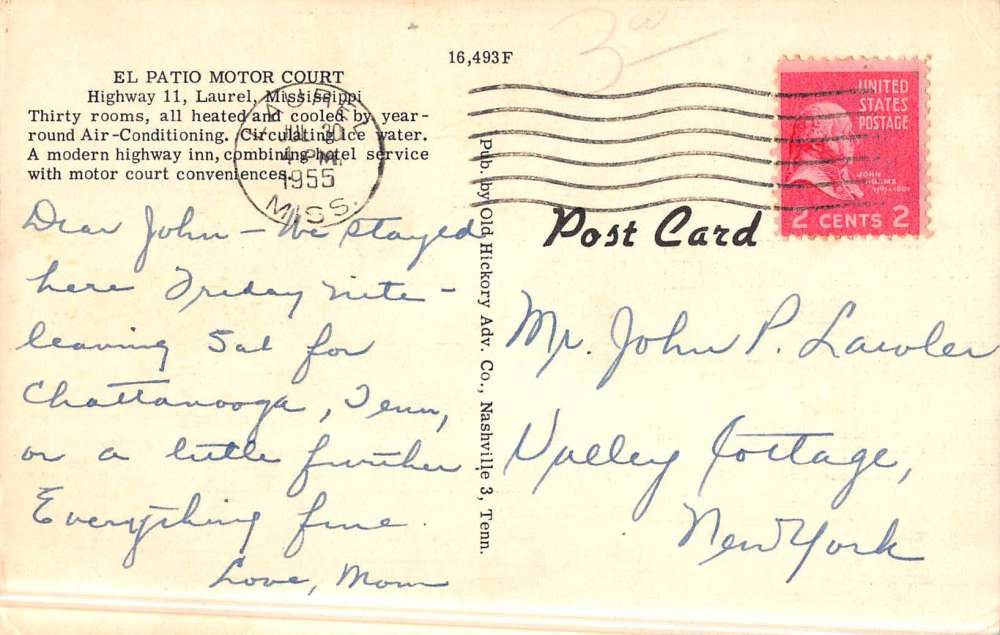 16,493F
3
EL PATIO MOTOR COURT
Highway 11, Laurel, Mississippi
Thirty rooms, all heated and cooled by year-
round Air-Conditioning. Circulating ice water.
A modern highway inn, combining hotel service
with motor court conveniences.
LAUREL
JUL 30
4 PM
1955
MISS.
UNITED
STATES
POSTAGE
JOHN
ADAMS
2 CENTS 2
Post Card
Pub. by Old Hickory Adv. Co., Nashville 3, Tenn.
Dear John – We stayed
here Friday nite –
leaving Sat for
Chattanooga, Tenn,
or a little further
Everything fine.
Love, Mom
Mr. John P. Lawler
Valley Cottage,
New York